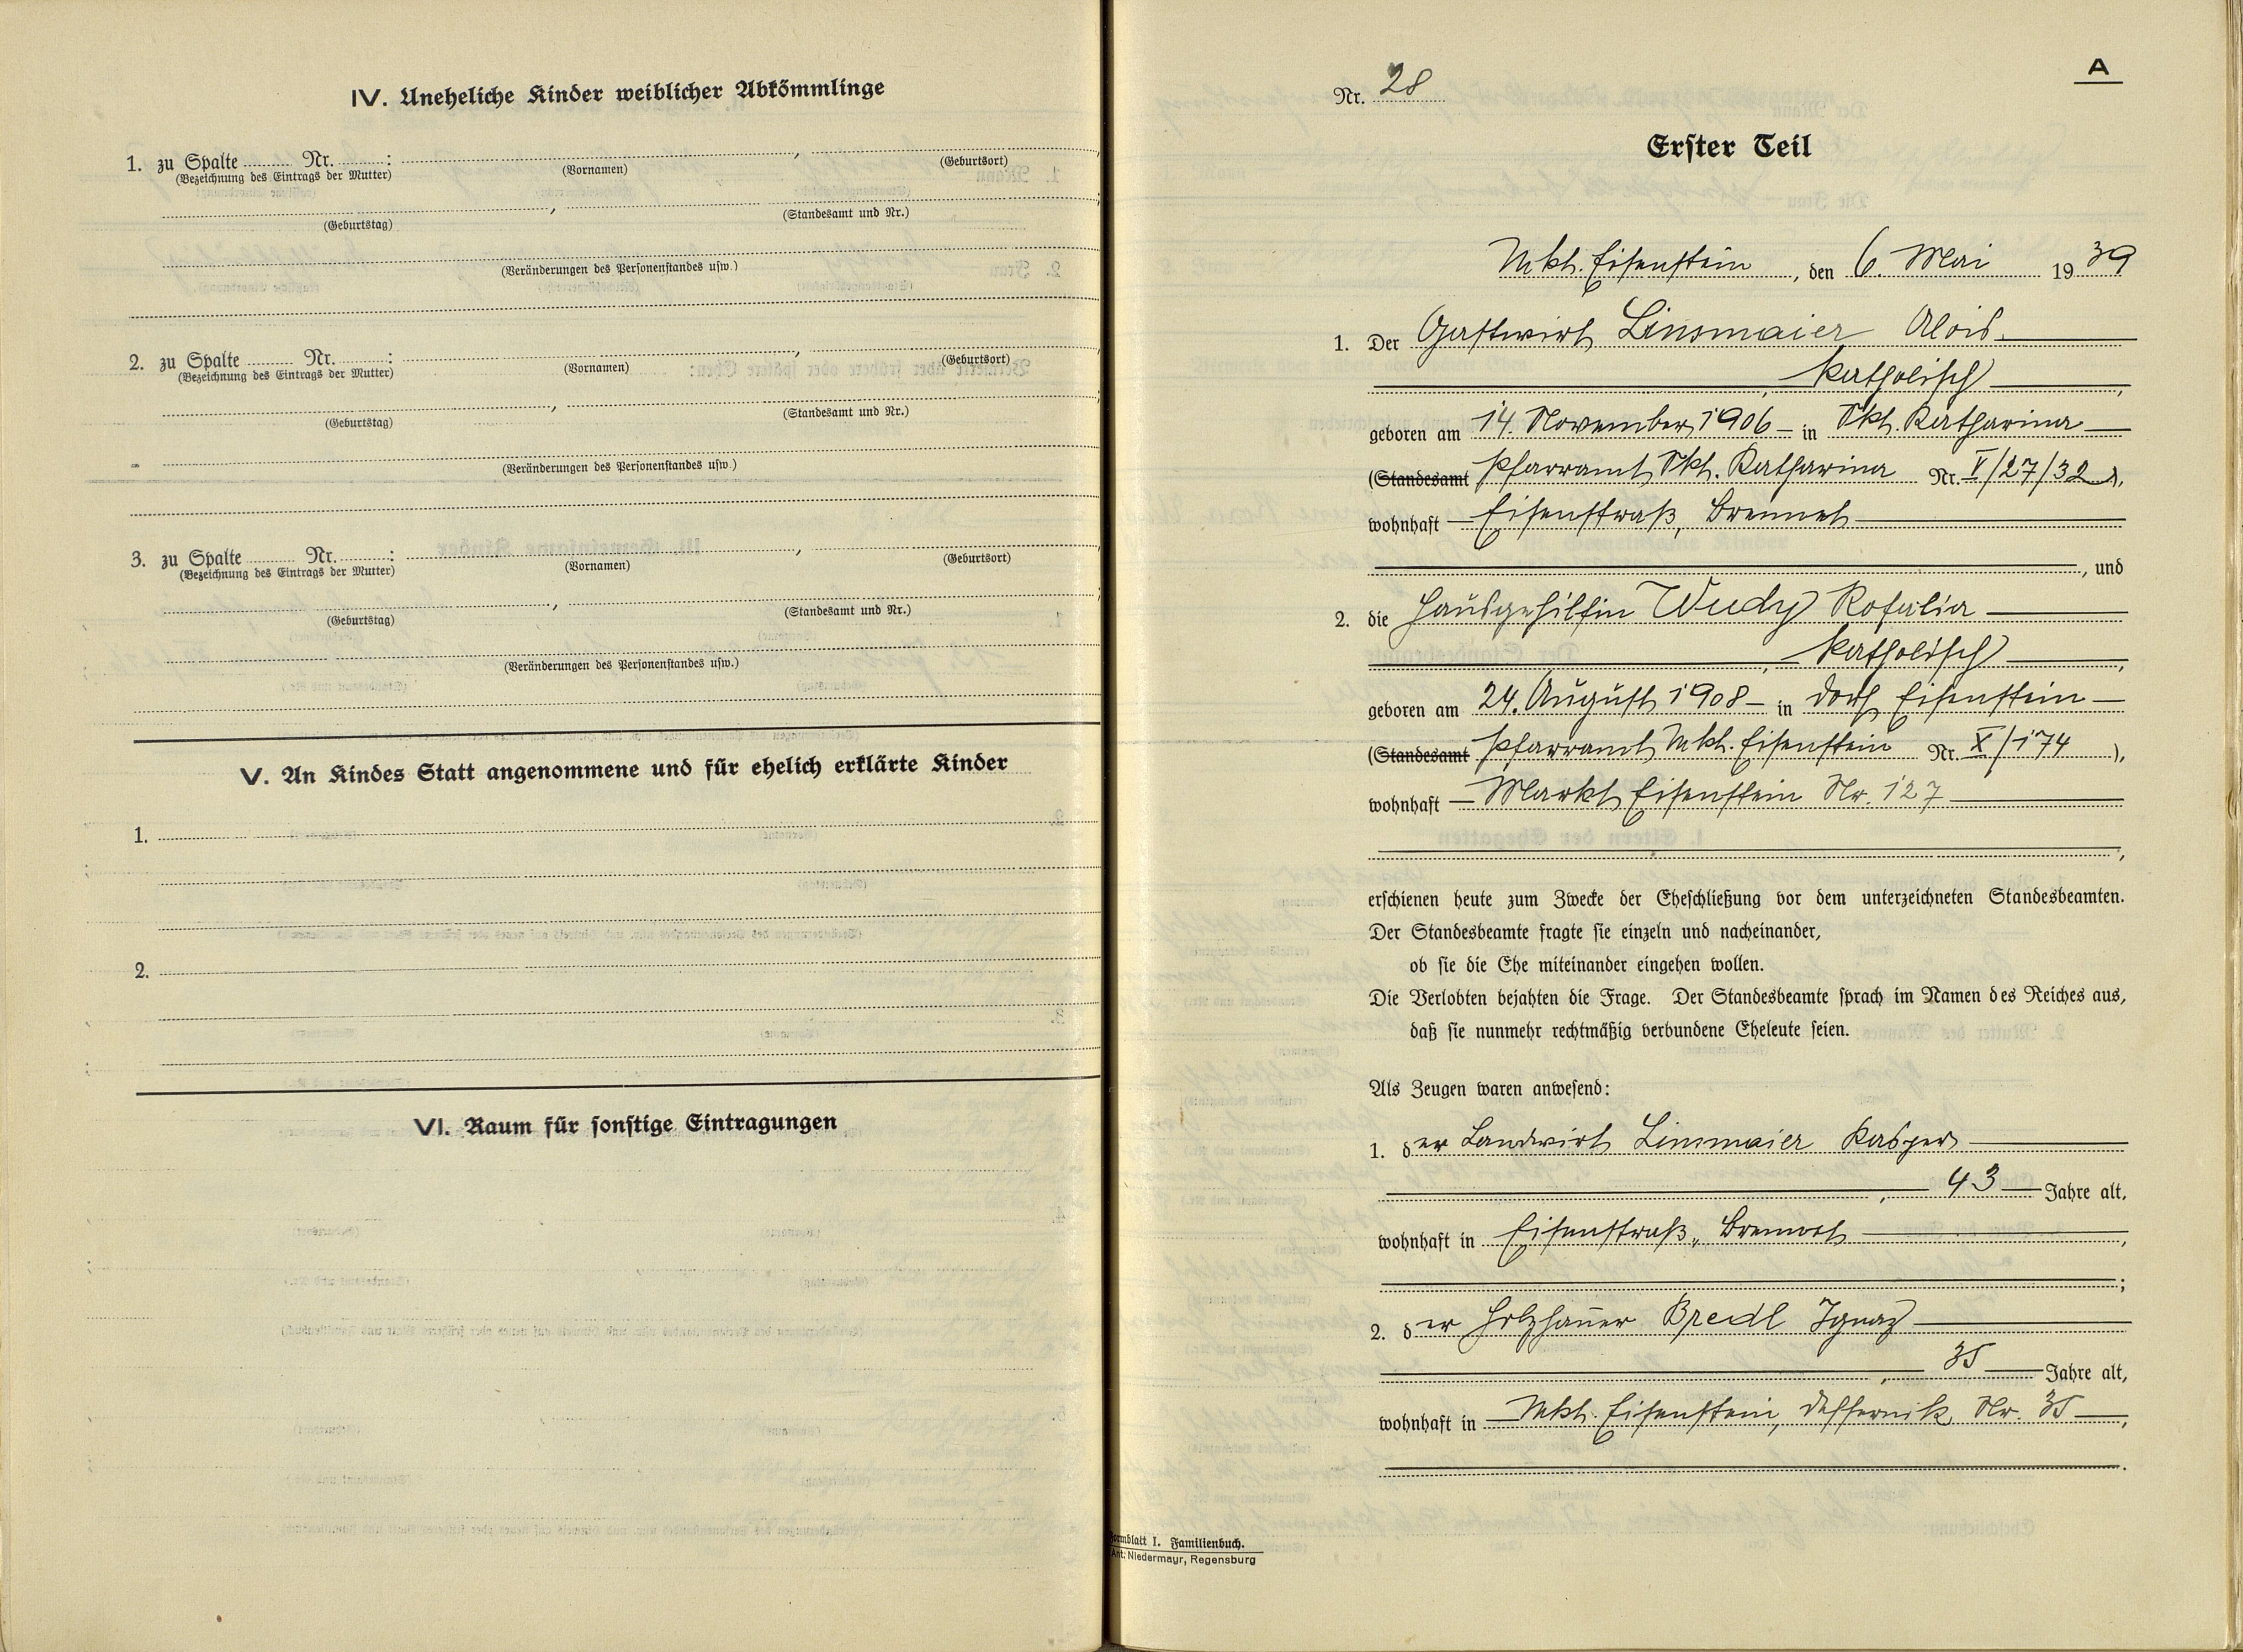 IV. Uneheliche Kinder weiblicher Abkömmlinge
1. zu Spalte ........ Nr. ........ : ........ , ........
(Bezeichnung des Eintrags der Mutter) (Vornamen) (Geburtsort)
........ , ........
(Geburtstag) (Standesamt und Nr.)
(Veränderungen des Personenstandes usw.)
2. zu Spalte ........ Nr. ........ : ........ , ........
(Bezeichnung des Eintrags der Mutter) (Vornamen) (Geburtsort)
........ , ........
(Geburtstag) (Standesamt und Nr.)
(Veränderungen des Personenstandes usw.)
3. zu Spalte ........ Nr. ........ : ........ , ........
(Bezeichnung des Eintrags der Mutter) (Vornamen) (Geburtsort)
........ , ........
(Geburtstag) (Standesamt und Nr.)
(Veränderungen des Personenstandes usw.)
V. An Kindes Statt angenommene und für ehelich erklärte Kinder
1.
2.
VI. Raum für sonstige Eintragungen
A
Nr. 28
Erster Teil
Mkt. Eisenstein, den 6. Mai 1939
1. Der Gastwirt Linsmaier Alois
, katholisch ,
geboren am 14. November 1906 in Skt. Katharina
(Standesamt Pfarramt Skt. Katharina Nr. V/27/32),
wohnhaft Eisenstraß, Brennet
, und
2. die Hausgehilfin Wudy Rosalia
, katholisch ,
geboren am 24. August 1908 in Dorf Eisenstein
(Standesamt Pfarramt Mkt. Eisenstein Nr. X/174),
wohnhaft Markt Eisenstein Nr. 127
,
erschienen heute zum Zwecke der Eheschließung vor dem unterzeichneten Standesbeamten.
Der Standesbeamte fragte sie einzeln und nacheinander,
ob sie die Ehe miteinander eingehen wollen.
Die Verlobten bejahten die Frage. Der Standesbeamte sprach im Namen des Reiches aus,
daß sie nunmehr rechtmäßig verbundene Eheleute seien.
Als Zeugen waren anwesend:
1. der Landwirt Linsmaier Kasper
, 43 Jahre alt,
wohnhaft in Eisenstraß, Brennet ,
;
2. der Holzhauer Bredl Ignaz
, 35 Jahre alt,
wohnhaft in Mkt. Eisenstein, Deffernik Nr. 35 ,
.
Formblatt I. Familienbuch.
Ant: Niedermayr, Regensburg